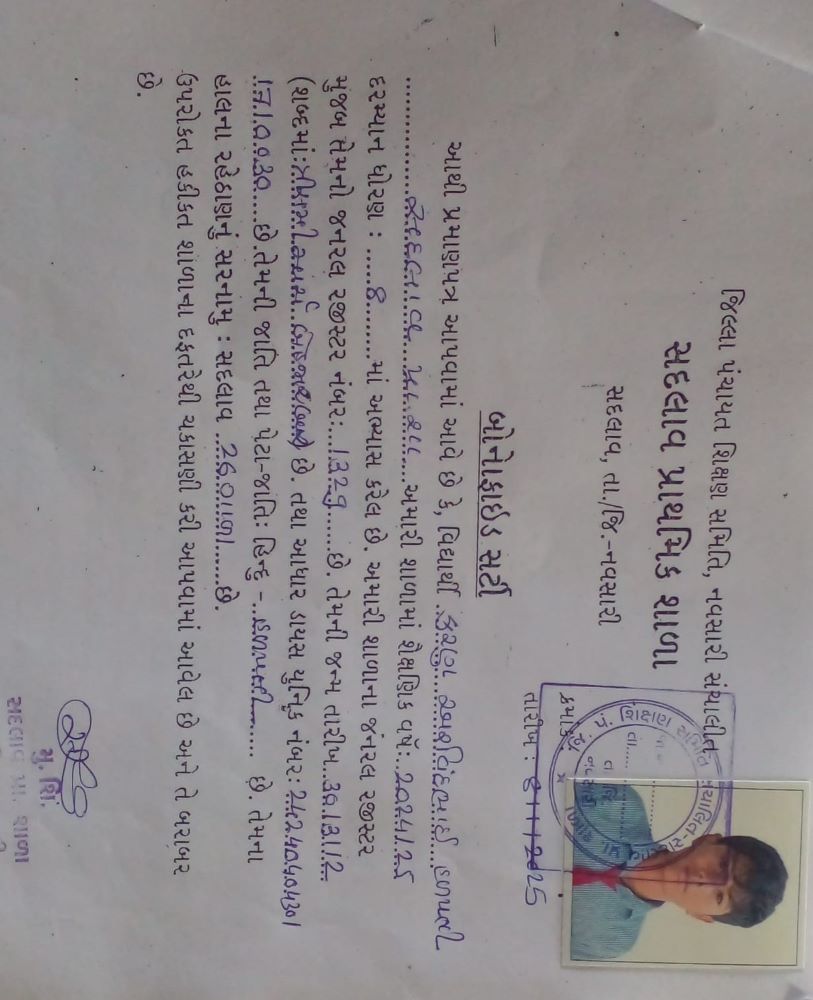 જિલ્લા પંચાયત શિક્ષણ સમિતિ, નવસારી સંચાલીત
સદલાવ પ્રાથમિક શાળા
સદલાવ, તા./જિ.-નવસારી
ક્રમાંક:
તારીખ : 8/11/2025
બોનાફાઈડ સર્ટી
આથી પ્રમાણપત્ર આપવામાં આવે છે કે, વિદ્યાર્થી કરણ હળપતિ
અમારી શાળામાં શૈક્ષણિક વર્ષ: 2024/25
દરમ્યાન ધોરણ : 8 માં અભ્યાસ કરેલ છે. અમારી શાળાના જનરલ રજીસ્ટર
મુજબ તેમનો જનરલ રજીસ્ટર નંબર: 1329 છે. તેમની જન્મ તારીખ 30/3/12
(શબ્દમાં: છે. તથા આધાર ડાયસ યુનિક નંબર:
છે.તેમની જાતિ તથા પેટા-જાતિ: હિન્દુ - હળપતિ છે. તેમના
હાલના રહેઠાણનું સરનામુ : સદલાવ છે.
ઉપરોક્ત હકીકત શાળાના દફતરેથી ચકાસણી કરી આપવામાં આવેલ છે અને તે બરાબર
છે.
મુ. શિ.
સદલાવ પ્રા. શાળા